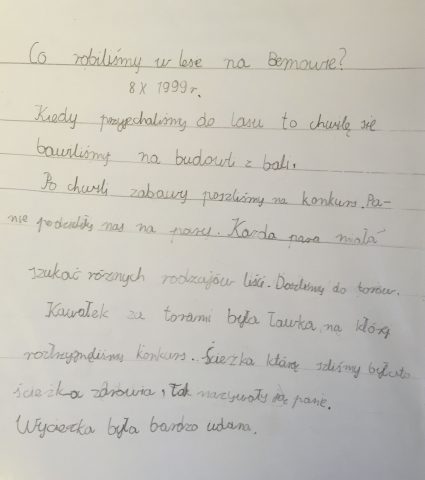 Co robiliśmy w lesie na Bemowie?
8 X 1999 r.
Kiedy przyjechaliśmy do lasu to chwilę się
bawiliśmy na budowli z bali.
Po chwili zabawy poszliśmy na konkurs. Pa-
nie podzieliły nas na pary. Karda para miała
szukać róznych rodzajów liści. Doszliśmy do torów.
Kawałek za torami była ławka, na którą
rozstrzygneliśmy konkurs. Ścieżka którą szliśmy była to
ścieżka zdrowia, tak nazywały ją panie.
Wycieczka była bardzo udana.